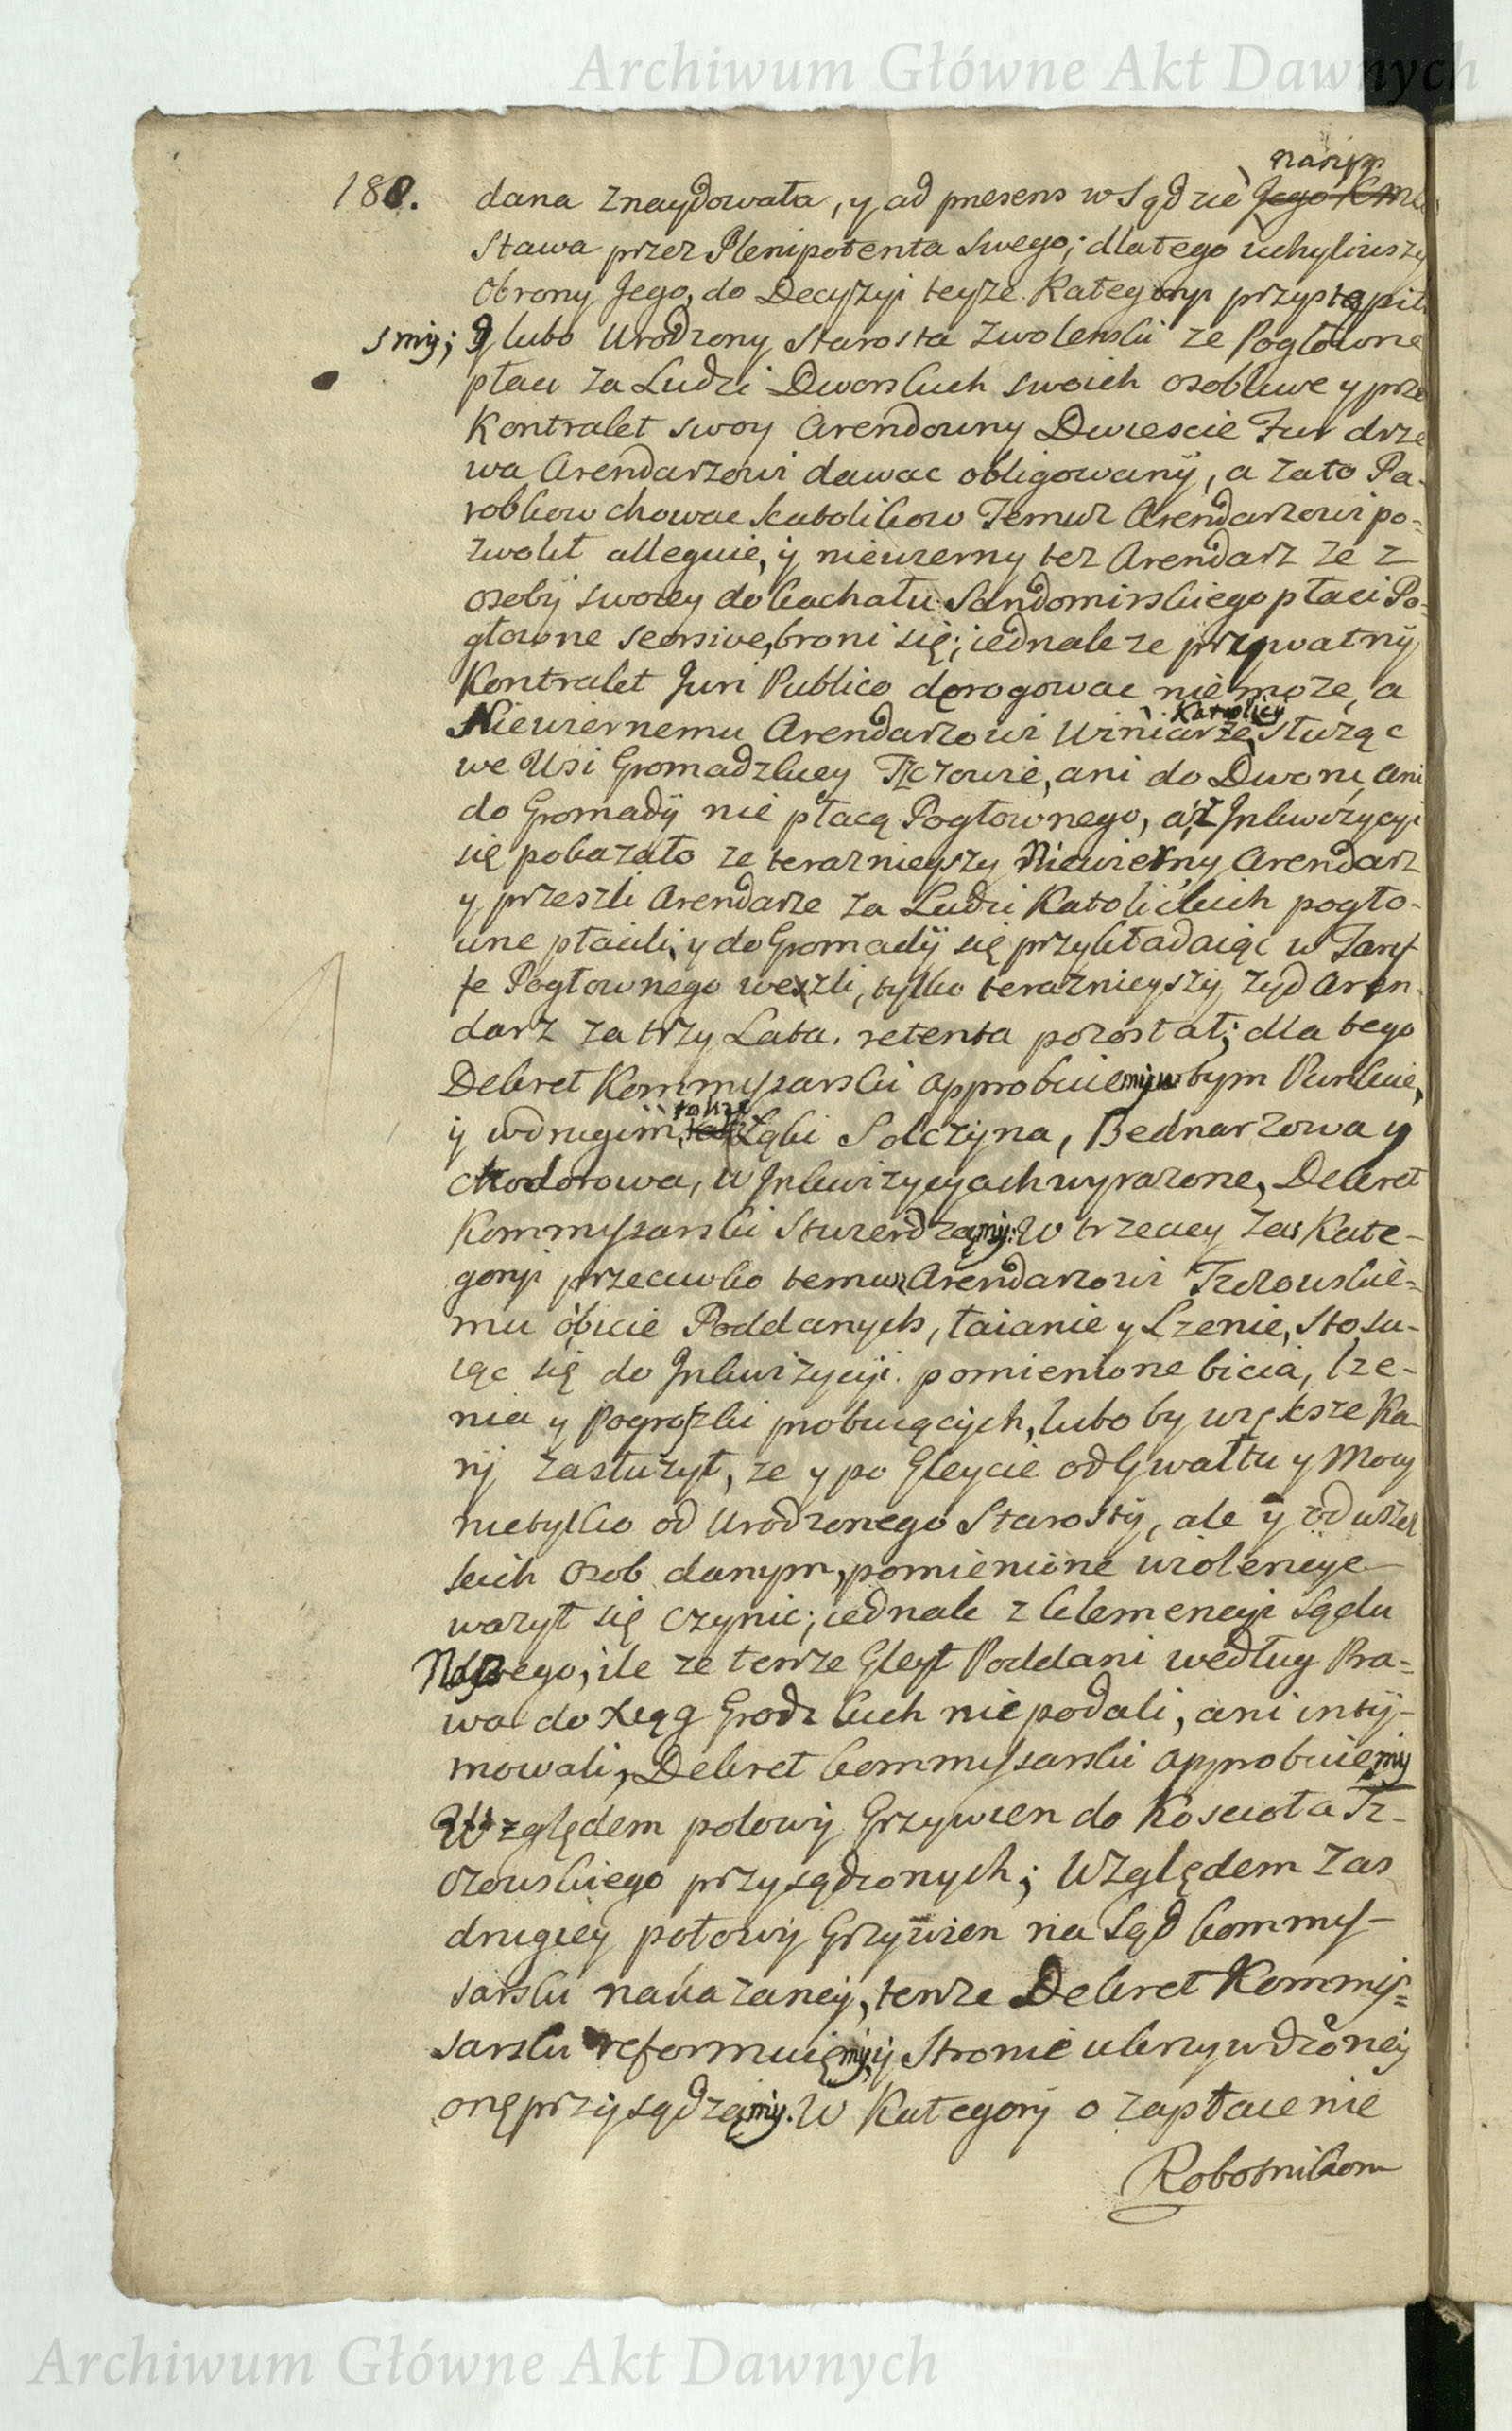 Archiwum Główne Akt Dawnych
180. dana znaydowała, y ad praesens w Sądzie naszym Jego Kmci
stawa przez Plenipotenta swego; dlatego uchyliwszy
Obrony Jego, do Decyzyi teyze Kategoryi przystąpili
smy; Y lubo Urodzony Starosta Zwolenski ze Pogłowne
płaci za Ludzi Dworskich swoich osobliwe y prze
Kontrakt swoy Arendowny Dwiescie Fur drze
wa Arendarzowi dawac obligowany, a zato Pa-
robkow chowac Katolikow Temuz Arendarzowi po-
zwolił alleguie, y niewierny tez Arendarz ze z
osoby swoiey do kachału Sandomirskiego płaci Po-
głowne seorsive, broni się; iednak ze prywatny
Kontrakt Juri Publico derogowac nie moze, a
Niewiernemu Arendarzowi Winiarze Katolicy słuząc
we Wsi Gromadzkiey Tczowie, ani do Dworu, ani
do Gromady nie płacą Pogłownego, a z Inkwizycyi
się pokazało ze teraznieyszy Niewierny Arendarz
y przeszli Arendarze za Ludzi Katolickich pogło-
wne płacili, y do Gromady się przykładaiąc w Taryf-
fe Pogłownego weszli, tylko teraznieyszy zyd Aren-
darz za trzy Lata retenta pozostał; dla tego
Dekret Kommyssarski approbuiemy w tym Punkcie,
y w drugim, takze Łąki Solczyna, Bednarzowa y
Chodorowa, w Inkwizycyach wyrazone, Dekret
Kommyssarski stwierdzamy: W trzeciey zas Kate-
goryi przeciwko temuz Arendarzowi Tczowskie-
mu o bicie Poddanych, łaianie y Lzenie, stosu-
iąc się do Inkwizycyi pomienione bicia, lze-
nia y Pogrozki probuiących, lubo by większe Ka-
ry zasłuzył, ze y po Gleycie od Gwałtu y Mocy
nietylko od Urodzonego Starosty, ale y od wszel
kich osob danym, pomienione wiolencye
wazył się czynic; iednak z klemencyi Sądu
Naszego, ile ze tenze Gleyt Poddani według Pra-
wa do Xiąg Grodzkich nie podali, ani inty-
mowali, Dekret kommyssarski approbuiemy
Względem połowy Grzywien do Koscioła Tc-
zowskiego przysądzonych; Względem zas
drugiey połowy Grzywien na Sąd kommys-
sarski nakazaney, tenze Dekret Kommys-
sarski reformuięmy, y Stronie ukrzywdzoney
onę przysądzamy. W Kategory o zapłacenie
Robotnikom
Archiwum Główne Akt Dawnych